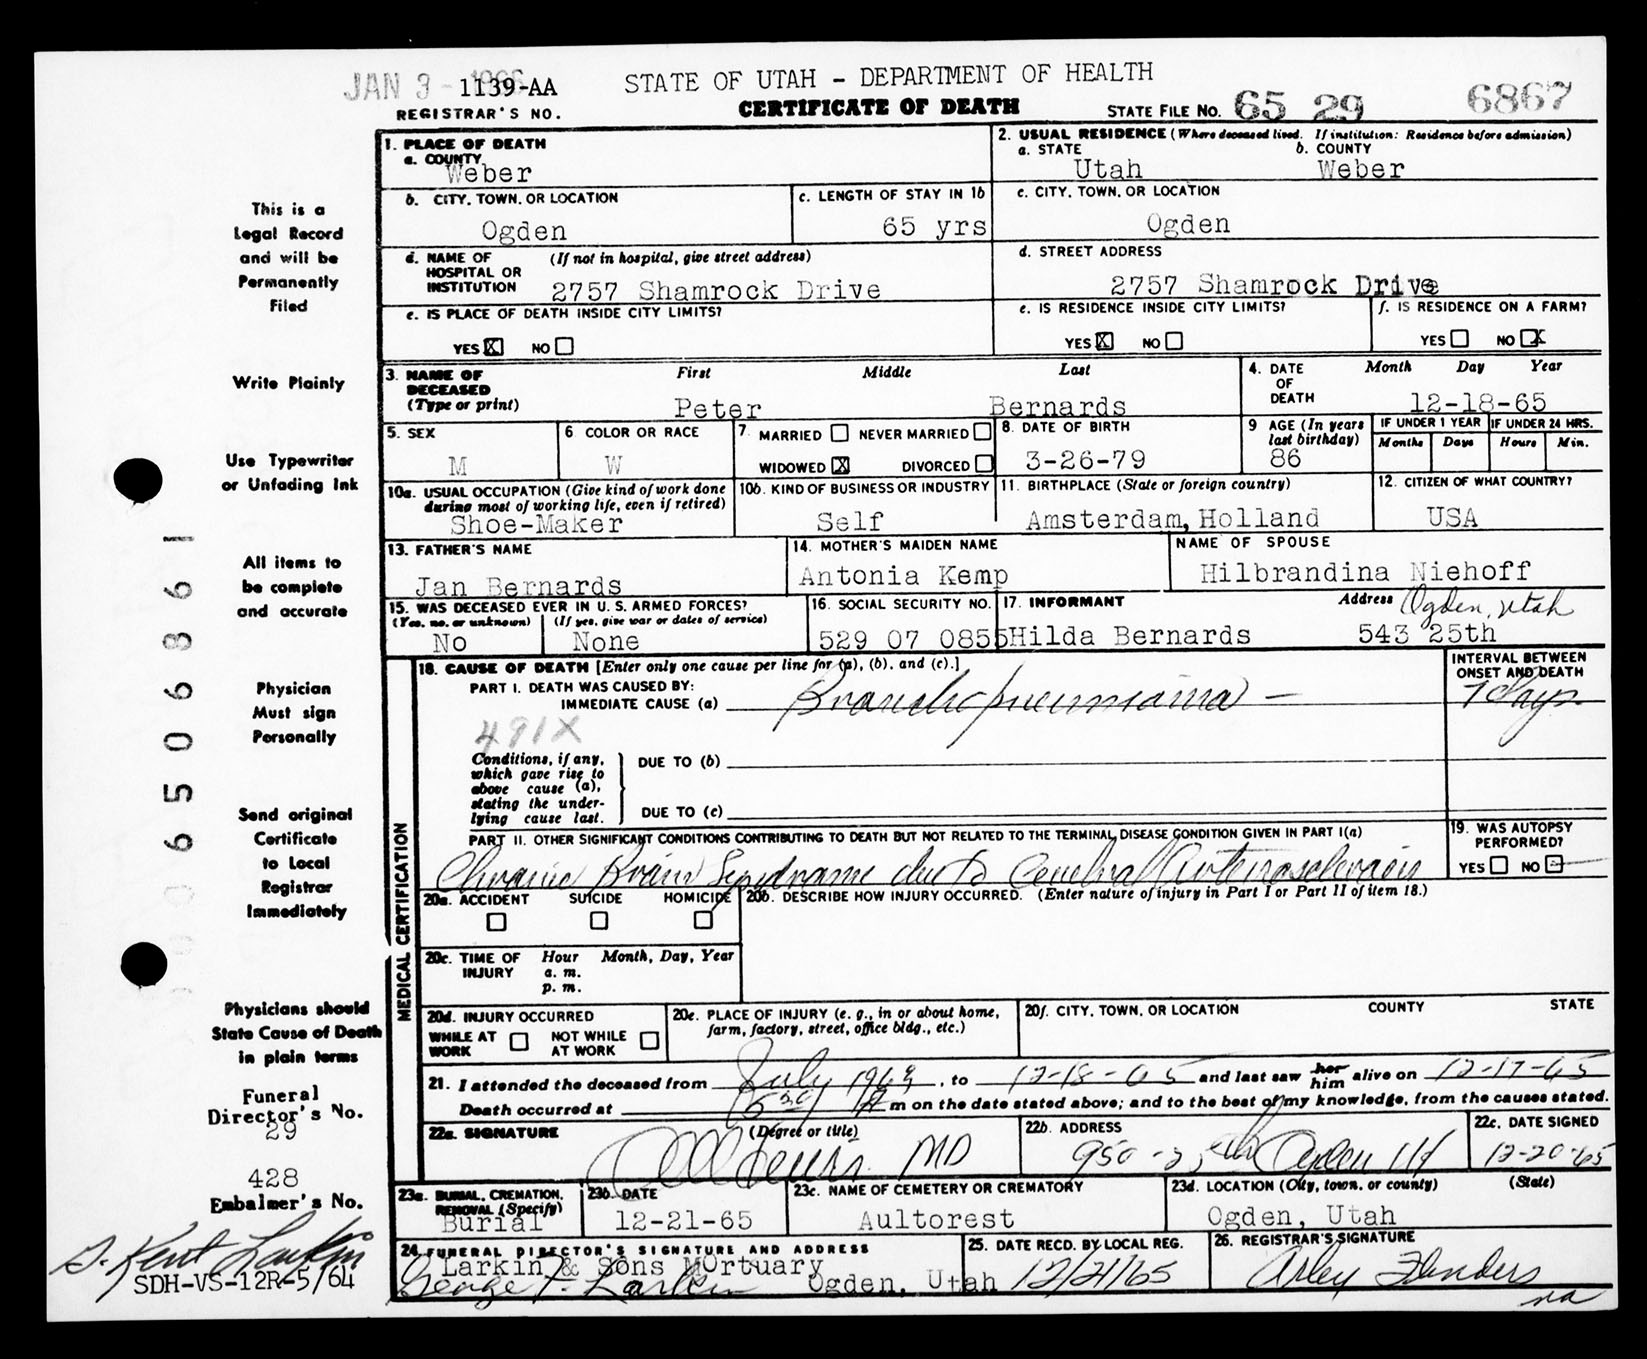 JAN 3 - 1966
1139-AA
REGISTRAR'S NO.
STATE OF UTAH - DEPARTMENT OF HEALTH
CERTIFICATE OF DEATH
STATE FILE NO. 65 29 6867
This is a
Legal Record
and will be
Permanently
Filed
Write Plainly
Use Typewriter
or Unfading Ink
All items to
be complete
and accurate
Physician
Must sign
Personally
Send original
Certificate
to Local
Registrar
Immediately
Physicians should
State Cause of Death
in plain terms
Funeral
Director's No.
29
428
Embalmer's No.
G. Kent Larkin
SDH-VS-12R-5/64
650686
1. PLACE OF DEATH
a. COUNTY
Weber
2. USUAL RESIDENCE (Where deceased lived. If institution: Residence before admission)
a. STATE b. COUNTY
Utah Weber
b. CITY, TOWN, OR LOCATION
Ogden
c. LENGTH OF STAY IN 1b
65 yrs
c. CITY, TOWN, OR LOCATION
Ogden
d. NAME OF (If not in hospital, give street address)
HOSPITAL OR
INSTITUTION 2757 Shamrock Drive
d. STREET ADDRESS
2757 Shamrock Drive
e. IS PLACE OF DEATH INSIDE CITY LIMITS?
YES X NO
e. IS RESIDENCE INSIDE CITY LIMITS?
YES X NO
f. IS RESIDENCE ON A FARM?
YES NO X
3. NAME OF First Middle Last
DECEASED
(Type or print) Peter Bernards
4. DATE Month Day Year
OF
DEATH 12-18-65
5. SEX
M
6. COLOR OR RACE
W
7. MARRIED NEVER MARRIED
WIDOWED X DIVORCED
8. DATE OF BIRTH
3-26-79
9 AGE (In years
last birthday)
86
IF UNDER 1 YEAR IF UNDER 24 HRS.
Months Days Hours Min.
10a. USUAL OCCUPATION (Give kind of work done
during most of working life, even if retired)
Shoe-Maker
10b. KIND OF BUSINESS OR INDUSTRY
Self
11. BIRTHPLACE (State or foreign country)
Amsterdam, Holland
12. CITIZEN OF WHAT COUNTRY?
USA
13. FATHER'S NAME
Jan Bernards
14. MOTHER'S MAIDEN NAME
Antonia Kemp
NAME OF SPOUSE
Hilbrandina Niehoff
15. WAS DECEASED EVER IN U. S. ARMED FORCES?
(Yes, no, or unknown) (If yes, give war or dates of service)
No None
16. SOCIAL SECURITY NO.
529 07 0855
17. INFORMANT Address Ogden, Utah
Hilda Bernards 543 25th
MEDICAL CERTIFICATION
18. CAUSE OF DEATH [Enter only one cause per line for (a), (b), and (c).]
INTERVAL BETWEEN
ONSET AND DEATH
PART I. DEATH WAS CAUSED BY:
IMMEDIATE CAUSE (a) Bronchopneumonia - 7 days
491X
Conditions, if any,
which gave rise to
above cause (a),
stating the under-
lying cause last.
DUE TO (b)
DUE TO (c)
PART II. OTHER SIGNIFICANT CONDITIONS CONTRIBUTING TO DEATH BUT NOT RELATED TO THE TERMINAL DISEASE CONDITION GIVEN IN PART I(a)
Chronic Brain Syndrome due to Cerebral Arteriosclerosis
19. WAS AUTOPSY
PERFORMED?
YES NO
20a. ACCIDENT SUICIDE HOMICIDE
20b. DESCRIBE HOW INJURY OCCURRED. (Enter nature of injury in Part I or Part II of item 18.)
20c. TIME OF Hour Month, Day, Year
INJURY a. m.
p. m.
20d. INJURY OCCURRED
WHILE AT NOT WHILE
WORK AT WORK
20e. PLACE OF INJURY (e. g., in or about home,
farm, factory, street, office bldg., etc.)
20f. CITY, TOWN, OR LOCATION COUNTY STATE
21. I attended the deceased from July , to 12-18-65 and last saw her him alive on 12-17-65
Death occurred at m on the date stated above; and to the best of my knowledge, from the causes stated.
22a. SIGNATURE (Degree or title)
MD
22b. ADDRESS
950 - 25th Ogden Ut
22c. DATE SIGNED
12-20-65
23a. BURIAL, CREMATION,
REMOVAL (Specify)
Burial
23b. DATE
12-21-65
23c. NAME OF CEMETERY OR CREMATORY
Aultorest
23d. LOCATION (City, town, or county) (State)
Ogden, Utah
24. FUNERAL DIRECTOR'S SIGNATURE AND ADDRESS
Larkin & Sons Mortuary
George F. Larkin Ogden, Utah
25. DATE RECD. BY LOCAL REG.
12/21/65
26. REGISTRAR'S SIGNATURE
Arley Flinders
na